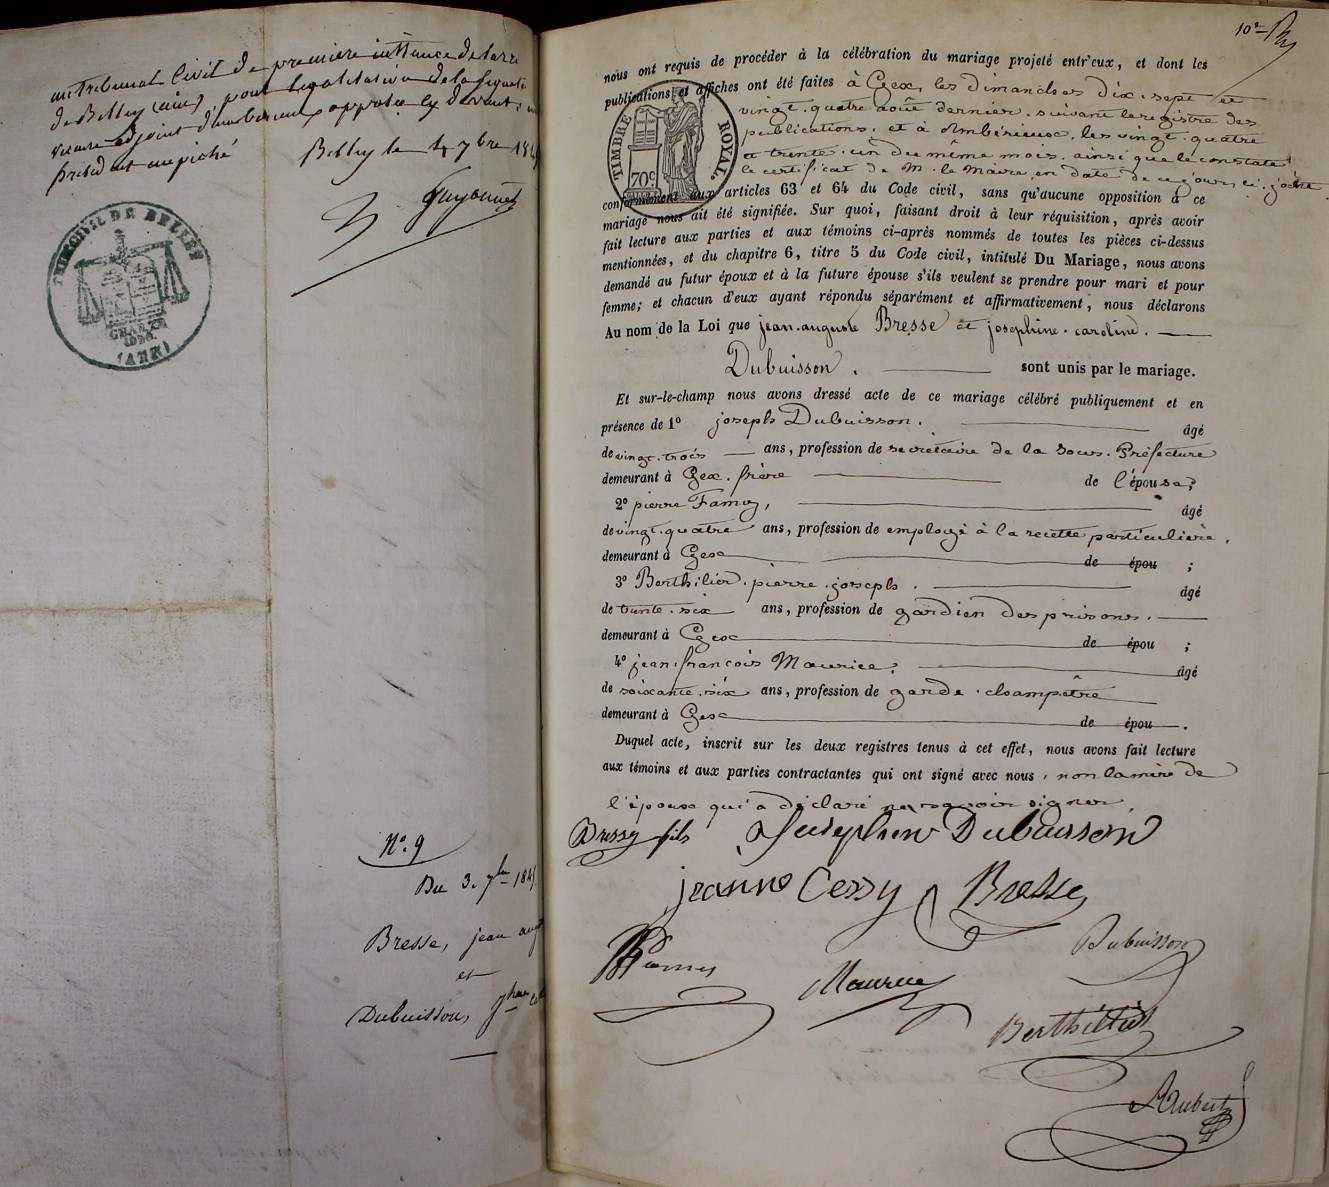 au Tribunal Civil de première instance de
de Belley (ain), pour légalisation de la
d'ambérieux apposée ci devant
président empêché
Belley le 4 7bre 184
Guyonnet
TRIB. CIVIL DE BELLEY
CHARTE
1830
(AIN)
N°. 9
Du 3. 7bre 184
Bresse, jean aug
et
Dubuisson,
10e
nous ont requis de procéder à la célébration du mariage projeté entr'eux, et dont les
publications et affiches ont été faites à Gex, les dimanches dix-sept et
vingt-quatre août dernier, suivant le registre des
publications, et à Ambérieux, les vingt-quatre
et trente-un du même mois, ainsi que le constate
le certificat de M. le Maire en date de ce jour ci-joint
TIMBRE ROYAL.
70c
conformément aux articles 63 et 64 du Code civil, sans qu'aucune opposition à ce
mariage nous ait été signifiée. Sur quoi, faisant droit à leur réquisition, après avoir
fait lecture aux parties et aux témoins ci-après nommés de toutes les pièces ci-dessus
mentionnées, et du chapitre 6, titre 5 du Code civil, intitulé Du Mariage, nous avons
demandé au futur époux et à la future épouse s'ils veulent se prendre pour mari et pour
femme; et chacun d'eux ayant répondu séparément et affirmativement, nous déclarons
Au nom de la Loi que jean-auguste Bresse et josephine-caroline.
Dubuisson. sont unis par le mariage.
Et sur-le-champ nous avons dressé acte de ce mariage célébré publiquement et en
présence de 1° joseph Dubuisson. âgé
de vingt-trois ans, profession de secrétaire de la Sous-Préfecture
demeurant à Gex, frère de l'épouse;
2° pierre Famy, âgé
de vingt-quatre ans, profession de employé à la recette particulière,
demeurant à Gex de épou ;
3° Berthilier, pierre-joseph. âgé
de trente-six ans, profession de gardien des prisons.
demeurant à Gex de épou ;
4° jean-françois Maurice; âgé
de soixante-six ans, profession de garde-champêtre
demeurant à Gex de épou .
Duquel acte, inscrit sur les deux registres tenus à cet effet, nous avons fait lecture
aux témoins et aux parties contractantes qui ont signé avec nous, non la mère de
l'épouse qui a déclaré ne savoir signer.
Bressy fils Josephine Dubuisson
jeanne Cessy Bresse
Famy Maurice Dubuisson
Berthillier